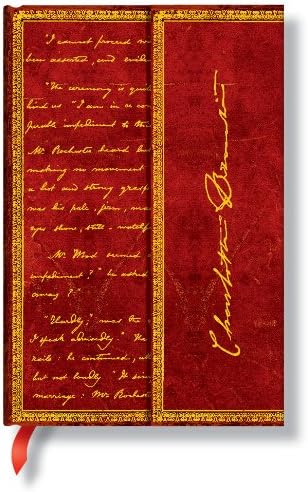 I cannot proceed
been asserted, and evid
"The ceremony is qu
hind us "I am in a co
perable impediment to th
Mr. Rochester heard bu
making no movement
a hot and strong grasp
was his pale, firm, ma
eyes shone, still - watchf
Mr. Wood seemed
impediment?" he asked
away?"
"Hardly," was the
I speak advisedly." The
rails: he continued, ut
but not loudly. "It sim
marriage: Mr. Rochest
Charlotte Brontë